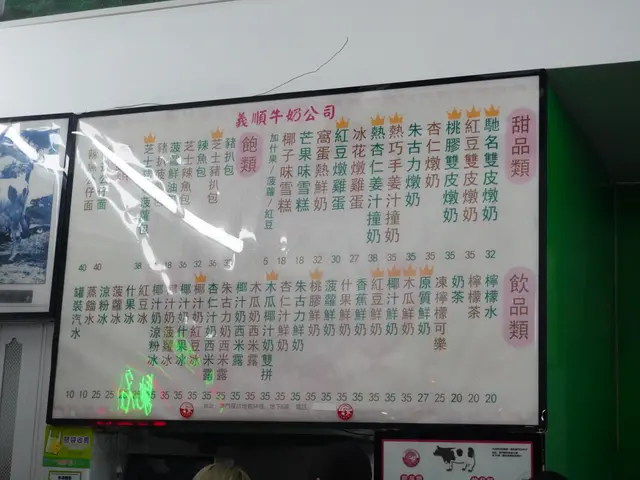 義順牛奶公司
甜品類
馳名雙皮燉奶 32
紅豆雙皮燉奶 35
桃膠雙皮燉奶 35
杏仁燉奶 35
朱古力燉奶 35
熱巧手姜汁撞奶 35
熱杏仁姜汁撞奶 38
冰花燉雞蛋 27
紅豆燉雞蛋 30
窩蛋熱鮮奶 32
芒果味雪糕 18
椰子味雪糕 18
加什果/菠蘿/紅豆 5
飽類
豬扒包
芝士豬扒包
辣魚包
芝士辣魚包
仔面 40
仔面 40
飲品類
檸檬水 20
檸檬茶 20
奶茶 20
凍檸檬可樂 25
原質鮮奶 27
木瓜鮮奶 35
椰汁鮮奶 35
紅豆鮮奶 35
香蕉鮮奶 35
什果鮮奶 35
菠蘿鮮奶 35
桃膠鮮奶 35
朱古力鮮奶 35
杏仁汁鮮奶 35
木瓜椰汁奶雙拼 35
木瓜奶西米露 35
椰汁奶西米露 35
朱古力奶西米露 35
杏仁汁奶西米露 35
椰汁奶紅豆冰 35
椰汁奶什果冰 35
椰汁奶菠蘿冰 35
椰汁奶涼粉冰
紅豆冰
什果冰
菠蘿冰 25
涼粉冰 25
蒸餾水 10
罐裝汽水 10